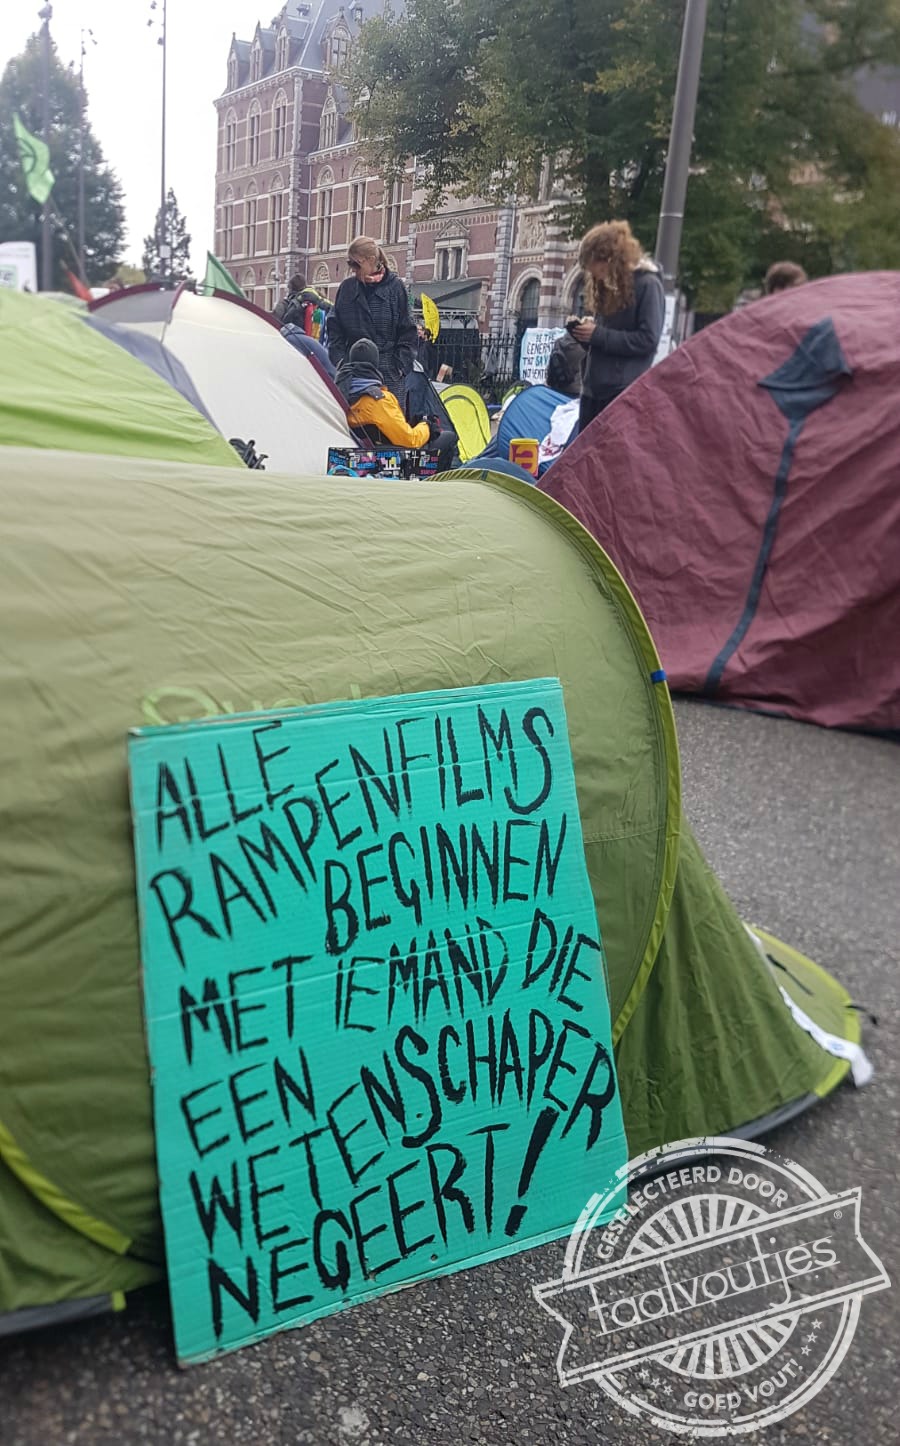 ALLE
RAMPENFILMS
BEGINNEN
MET IEMAND DIE
EEN
WETENSCHAPER
NEGEERT!
GESELECTEERD DOOR
taalvoutjes
GOED VOUT!